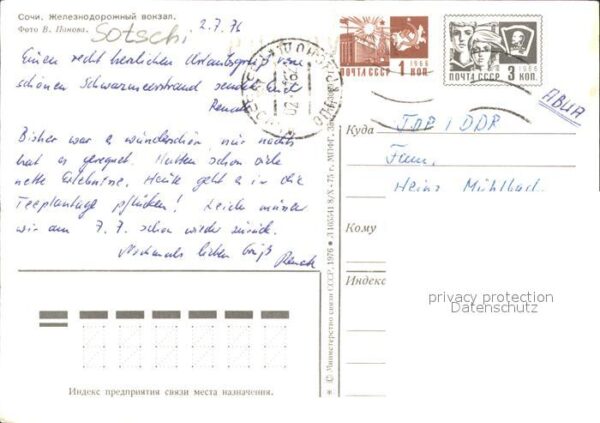 Сочи. Железнодорожный вокзал.
Фото В. Панова.
Sotschi
2.7.76
Einen recht herzlichen Urlaubsgruß vom
schönen Schwarzmeerstrand sendet Euch
Renate
Bisher war es wunderschön, nur nachts
hat es geregnet. Hatten schon viele
nette Erlebnisse. Heute geht es in die
Teeplantage pflücken! Leider müssen
wir am 7.7. schon wieder zurück.
Nochmals lieben Gruß
Renate
Индекс предприятия связи места назначения.
© Министерство связи СССР, 1976
1966
ПОЧТА СССР 1 КОП.
1966
ПОЧТА СССР 3 КОП.
АВИА
Куда
ГДР / DDR
Fam.
Heinz Mühlbad
Кому
Индекс
privacy protection
Datenschutz